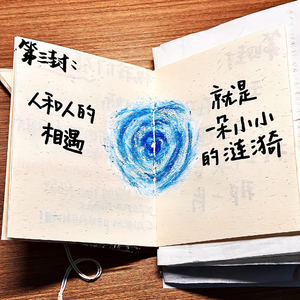 第三封：
人和人的
相遇
就是
一朵小小
的涟漪